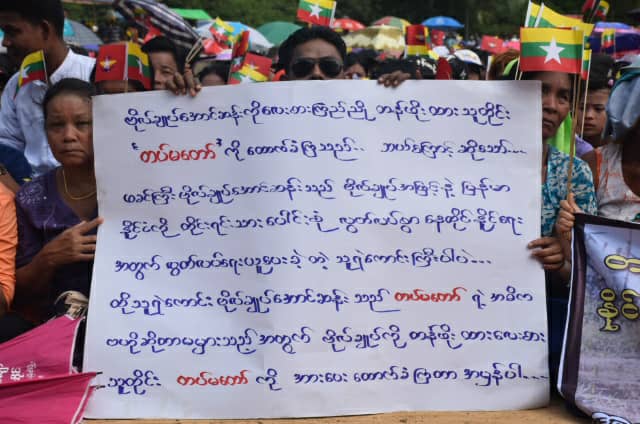 ဗိုလ်ချုပ်အောင်ဆန်းကိုလေးစားကြည်ညို တန်ဖိုး ထားသူတိုင်း
"တပ်မတော်" ကို ထောက်ခံကြသည်.. ဘာကြောင့် ဆိုသော်....
ဖခင်ကြီး ဗိုလ်ချုပ်အောင်ဆန်း သည် ဗိုလ်ချုပ်အဖြင့် နဲ့ မြန်မာ
နိုင်ငံကို တိုင်းရင်းသားပေါင်းစုံ လွတ်လပ်စွာ နေထိုင်နိုင်ရေး
အတွက် လွတ်လပ်ရေးယူပေးခဲ့ တဲ့ သူရဲကောင်းကြီးပါပဲ...
ထိုသူရဲကောင်း ဗိုလ်ချုပ်အောင်ဆန်း သည် တပ်မတော် ရဲ့ အဓိက
ဗဟိုဆိုတာမမှားသည့်အတွက် ဗိုလ်ချုပ်ကို တန်ဖိုး ထားလေးစား
...သူတိုင်း တပ်မတော် ကို အားပေး ထောက်ခံကြတာ အမှန်ပါ....